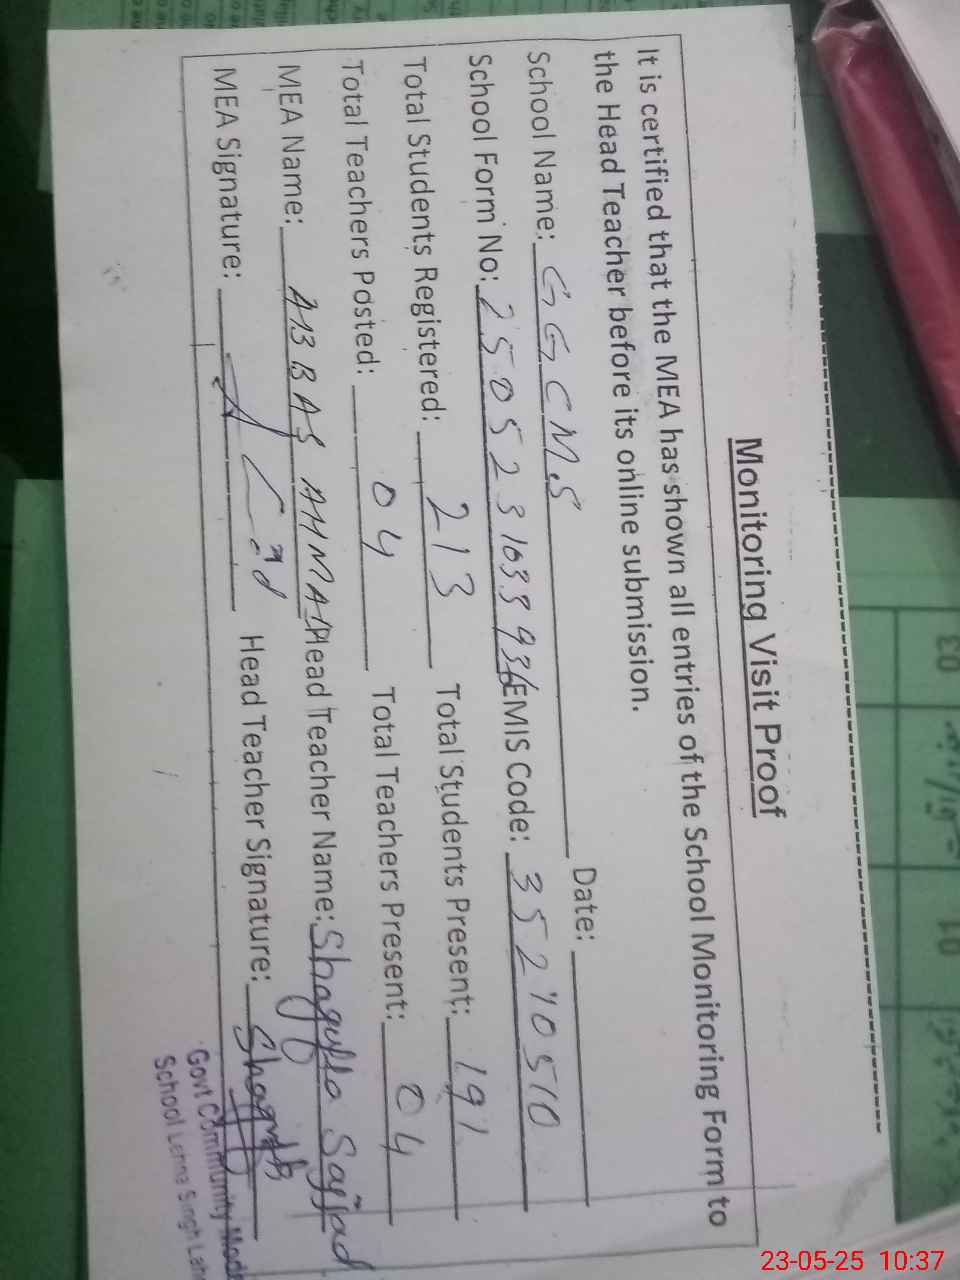 Monitoring Visit Proof
It is certified that the MEA has shown all entries of the School Monitoring Form to
the Head Teacher before its online submission.
School Name: GGCM.S Date:
School Form No: 25052310339 EMIS Code: 35270510
Total Students Registered: 213 Total Students Present: 191
Total Teachers Posted: 04 Total Teachers Present: 04
MEA Name: ABBAS AHMAD Head Teacher Name: Shagufta Sajjad
MEA Signature: Head Teacher Signature: Shagufta
Govt Community Mode
School Lehna Singh
03
01
23-05-25 10:37